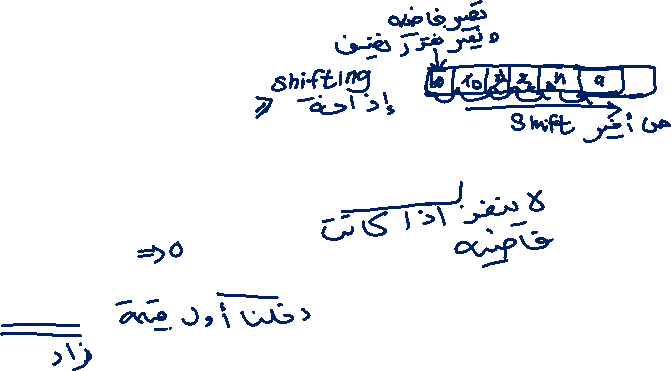 تصير فاضيه
ونصير نقدر نضيف
shifting
إزاحة
10
9
Shift
من أخير
لا ينفذ إذا كانت
فاضيه
⇒ 0
دخلنا أول قيمة
زاد